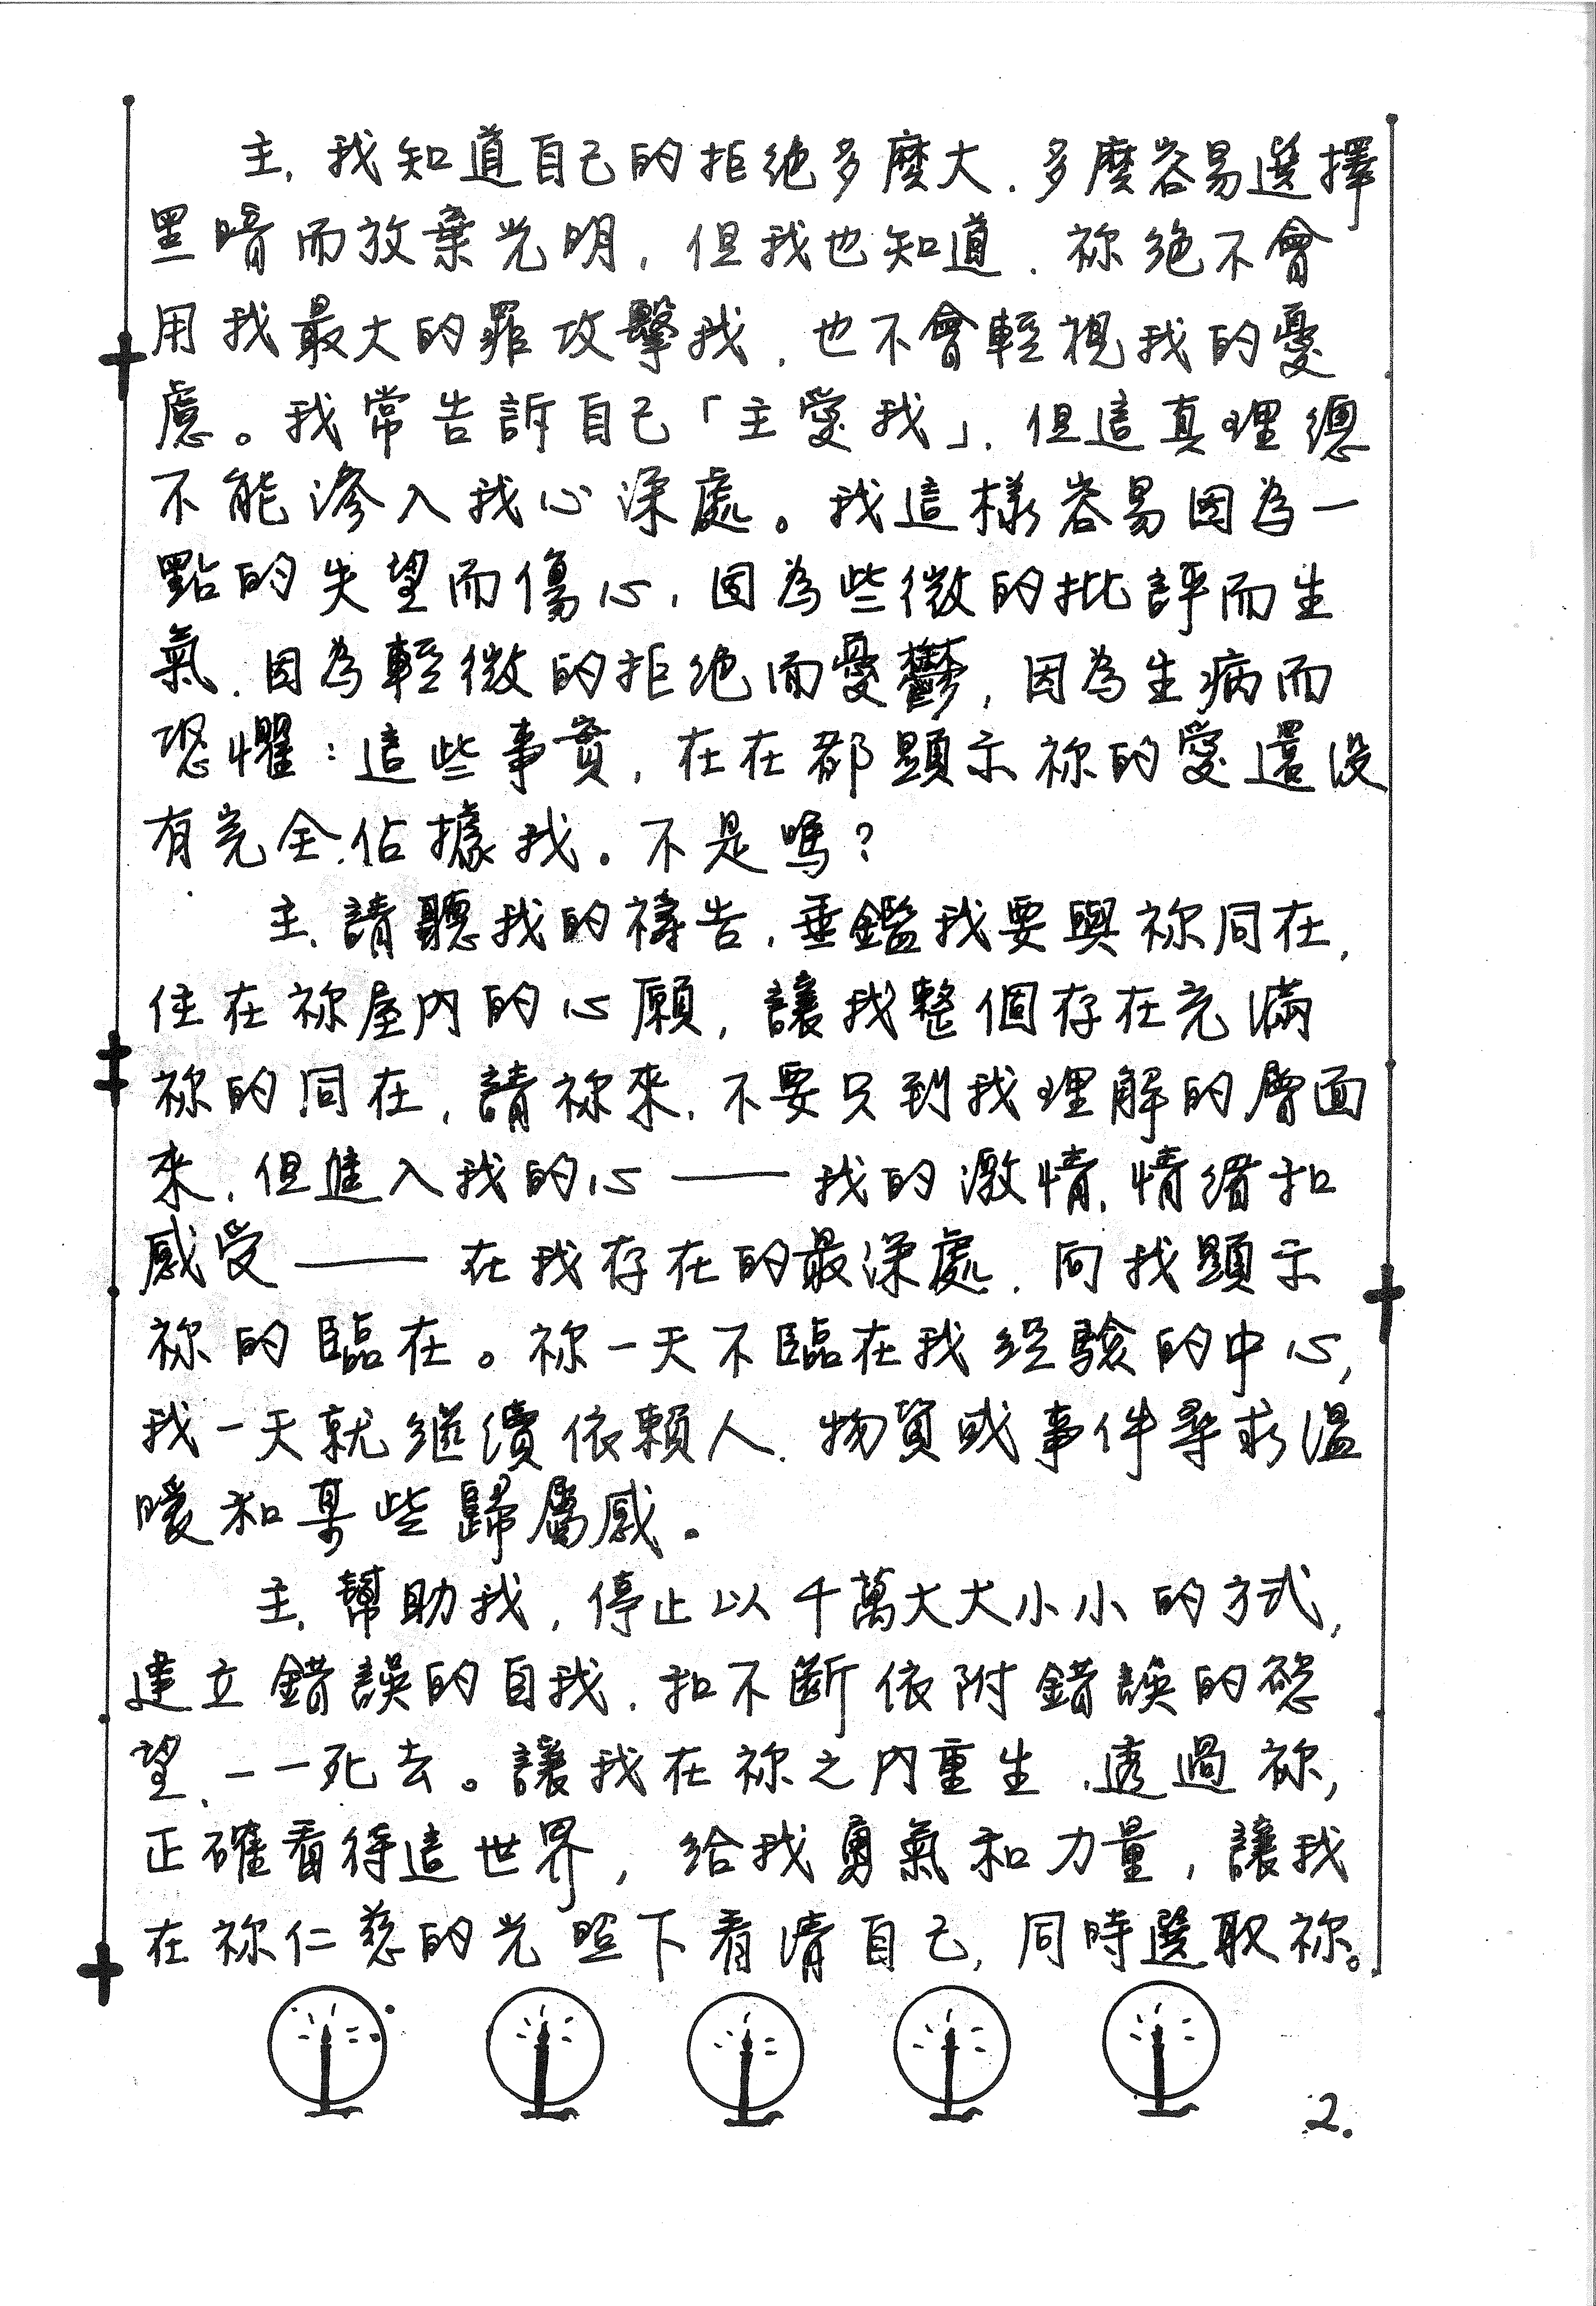 主,我知道自己的拒絶多麼大.多麼容易選擇
黑暗而放棄光明,但我也知道.祢絶不會
用我最大的罪攻擊我,也不會輕視我的憂
慮。我常告訴自己「主愛我」,但這真理總
不能滲入我心深處。我這樣容易因為一
點的失望而傷心,因為些微的批評而生
氣.因為輕微的拒絶而憂鬱,因為生病而
恐懼:這些事實,在在都顯示祢的愛還没
有完全佔據我。不是嗎?
主、請聽我的禱告,垂鑑我要與祢同在,
住在祢屋內的心願,讓我整個存在充滿
祢的同在,請祢來.不要只到我理解的層面
來.但進入我的心——我的激情,情緒和
感受——在我存在的最深處.向我顯示
祢的臨在。祢一天不臨在我經驗的中心,
我一天就繼續依賴人.物質或事件尋求溫
暖和某些歸屬感。
主,幫助我,停止以千萬大大小小的方式,
建立錯誤的自我.和不斷依附錯誤的慾
望、一一死去。讓我在祢之內重生,透過祢,
正確看待這世界,給我勇氣和力量,讓我
在祢仁慈的光照下看清自己,同時選取祢。
2.